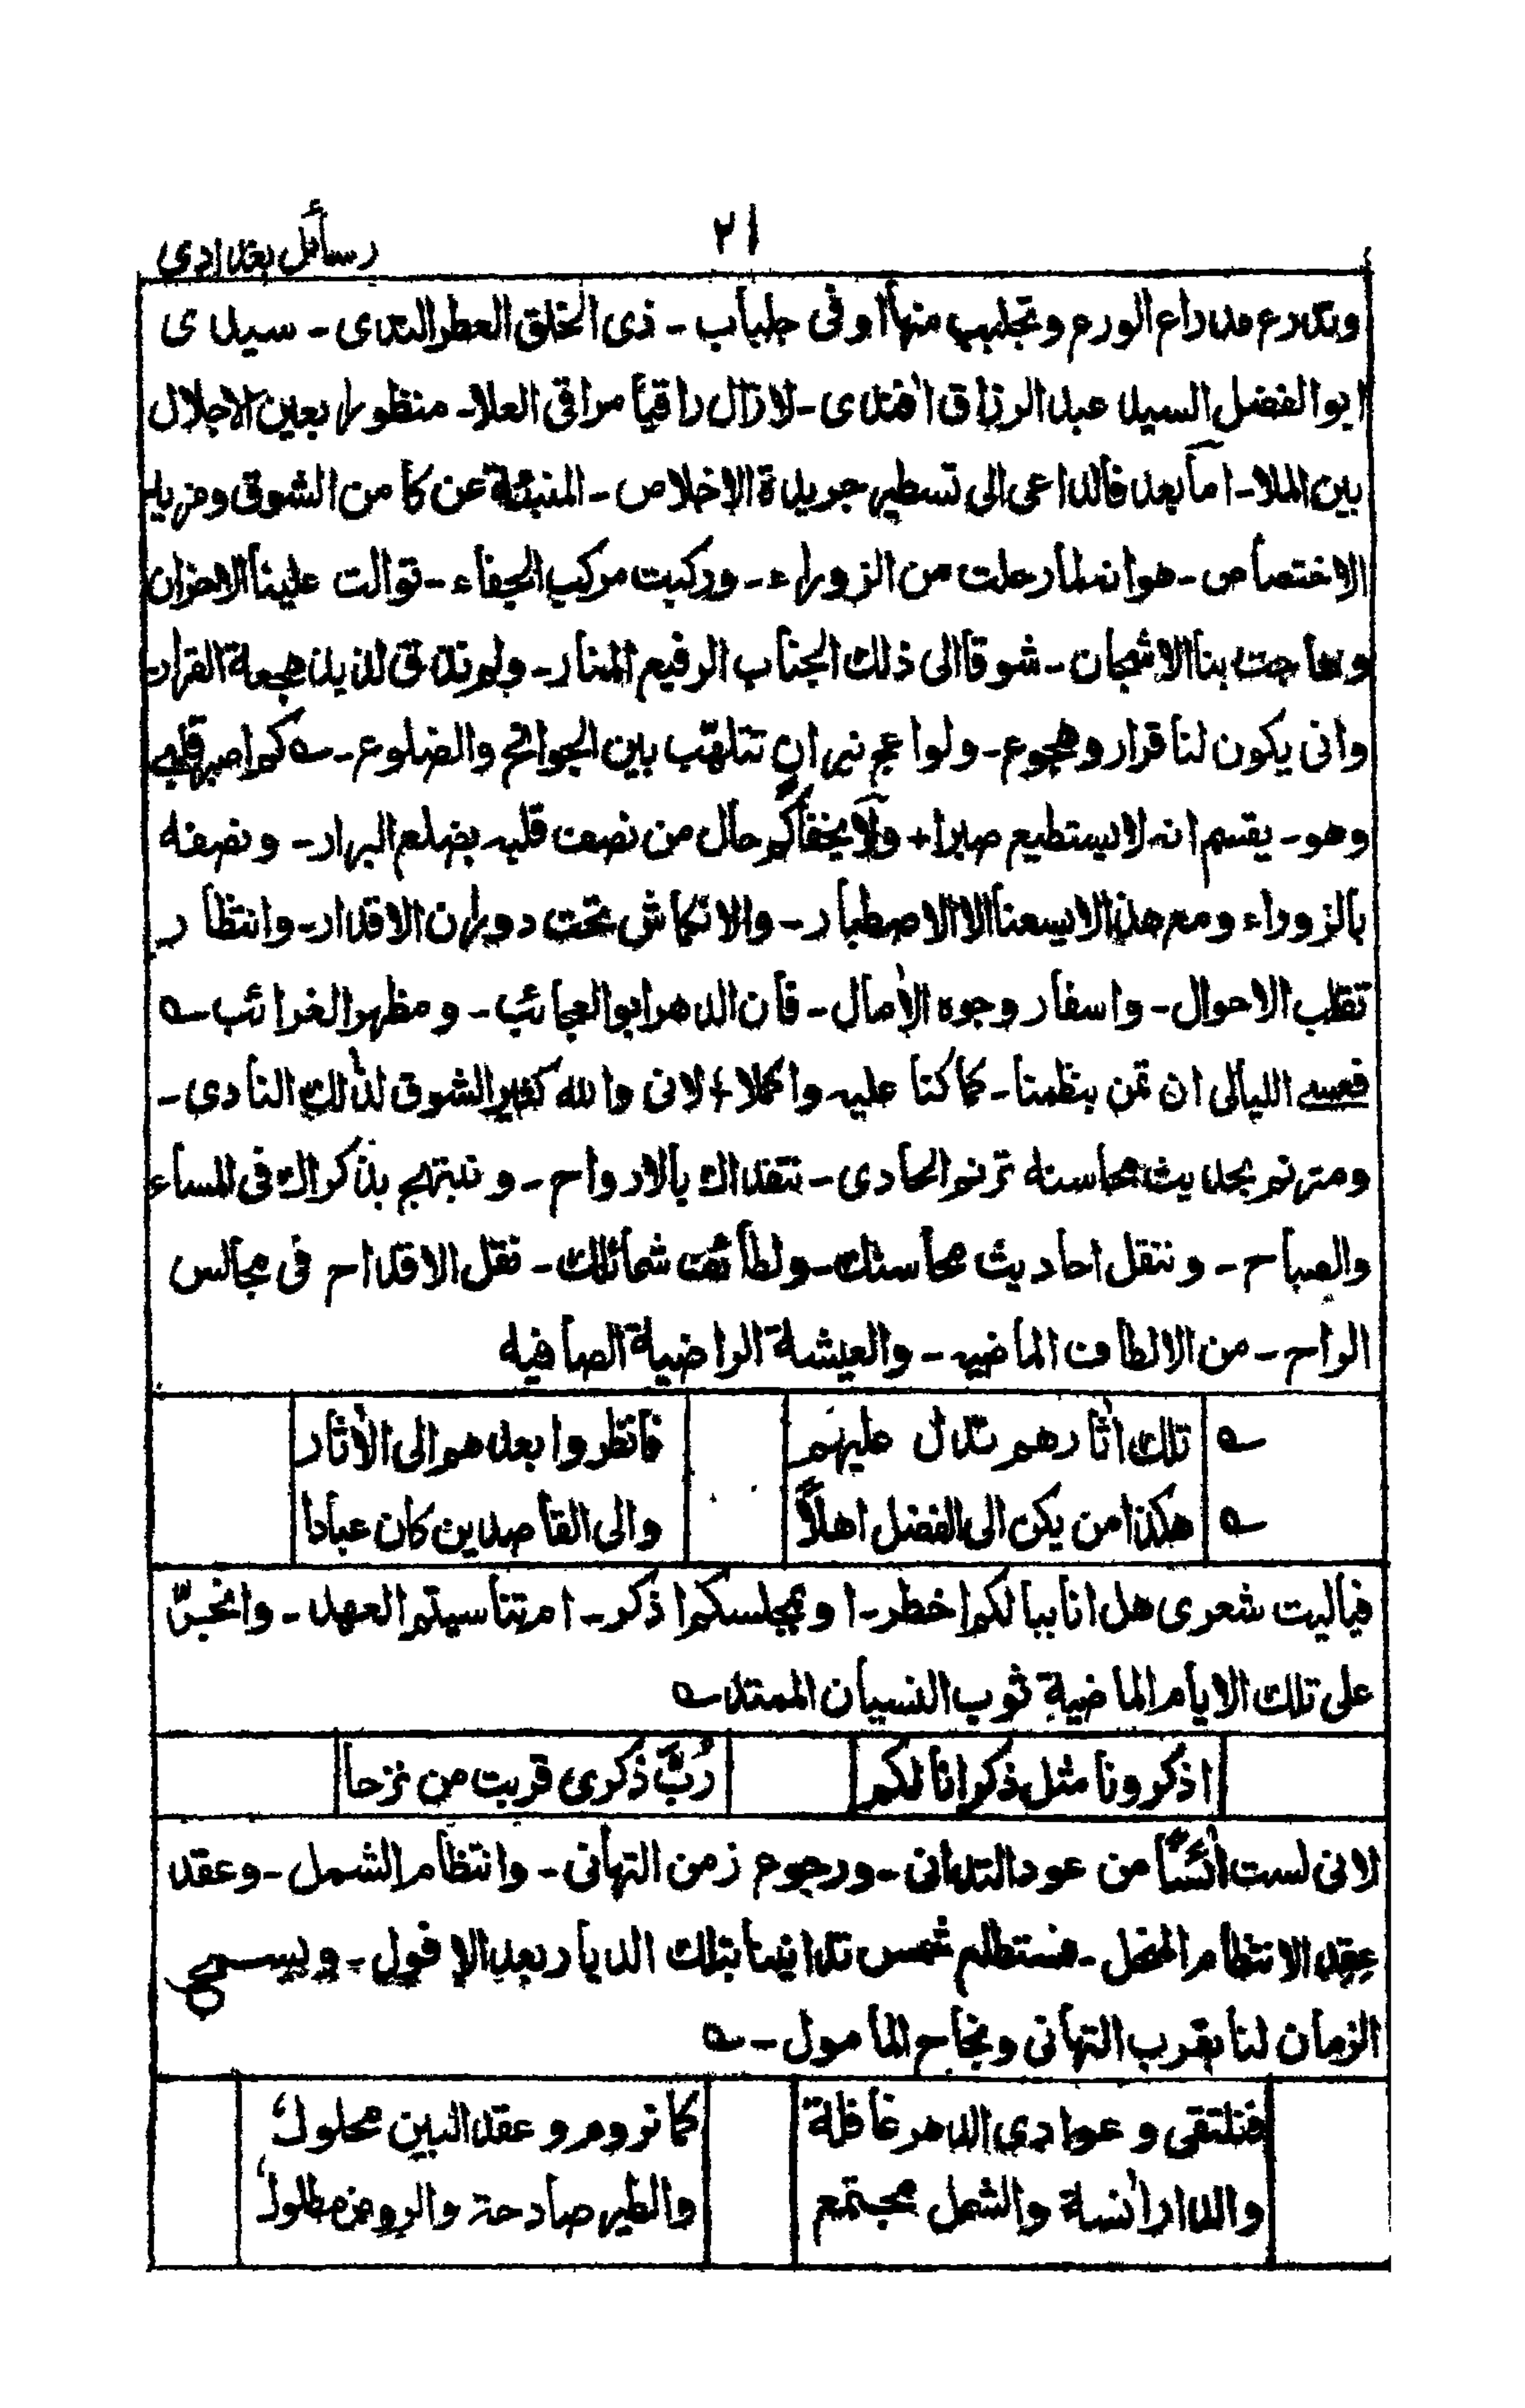 ٢١
رسائل بغدادي
وتدرع مداراع الورع وتجلبب منها اوفى جلباب - ذى الخلق العطر الندى - سيدى
ابو الفضل السيد عبد الرزاق افندى - لا زال راقيا مراقى العلا - منظورا بعين الاجلال
بين الملا - اما بعد فالداعى الى تسطير جريدة الاخلاص - المنبئة عن كامن الشوق ومزيد
الاختصاص - هو انه لما رحلت من الزوراء - وركبت مركب الجفاء - توالت علينا الاحزان
وهاجت بنا الاشجان - شوقا الى ذلك الجناب الرفيع المنار - ولم نذق لذيذ هجعة القرار
وانى يكون لنا قرار وهجوع - ولواعج نيران تتلهّب بين الجوانح والضلوع - كم اصبر قلبى
وهو - يقسم انه لا يستطيع صبرا + ولا يخفاكم حال من نصف قلبه بضلع البرار - ونصفه
بالزوراء ومع هذا لا يسعنا الا الاصطبار - والانكماش تحت دوران الاقدار - وانتظار
تقلب الاحوال - واسفار وجوه الأمال - فان الدهر ابو العجائب - ومظهر الغرائب
فعسى الليالى ان تمن بنظمنا - كما كنا عليه واكملا + لانى والله كثير الشوق لذالك النادى -
ومترنم بحديث محاسنه ترنم الحادى - نتفداك بالارواح - ونبتهج بذكراك فى المساء
والصباح - وننتقل احاديث محاسنك - ولطائف شمائلك - نقل الاقداح فى مجالس
الراح - من الالطاف الماضيه - والعيشة الراضية الصافيه
تلك أثارهم تدل عليهم فانظروا بعدهم الى الأثار
هكذا من يكن الى الفضل اهلاً والى القاصدين كان عبادا
فياليت شعرى هل انا ببالكم اخطر - او بمجلسكم اذكر - ام تناسيتم العهد - وانجرّ
على تلك الايام الماضية ثوب النسيان الممتد
اذكرونا مثل ذكرانا لكم رُبَّ ذكرى قربت من نزحا
لانى لست أئسًا من عود التدانى - ورجوع زمن التهانى - وانتظام الشمل - وعقد
عقد الانتظام المنحل - فستطلع شمس تدانينا بتلك الديار بعد الافول - ويسمح
الزمان لنا بقرب التهانى ونجاح المأمول -
فنلتقى وعوادى الدهر غافلة كما نروم وعقد البين محلول
والدار أنسة والشمل مجتمع والطير صادحة والروض مطلول